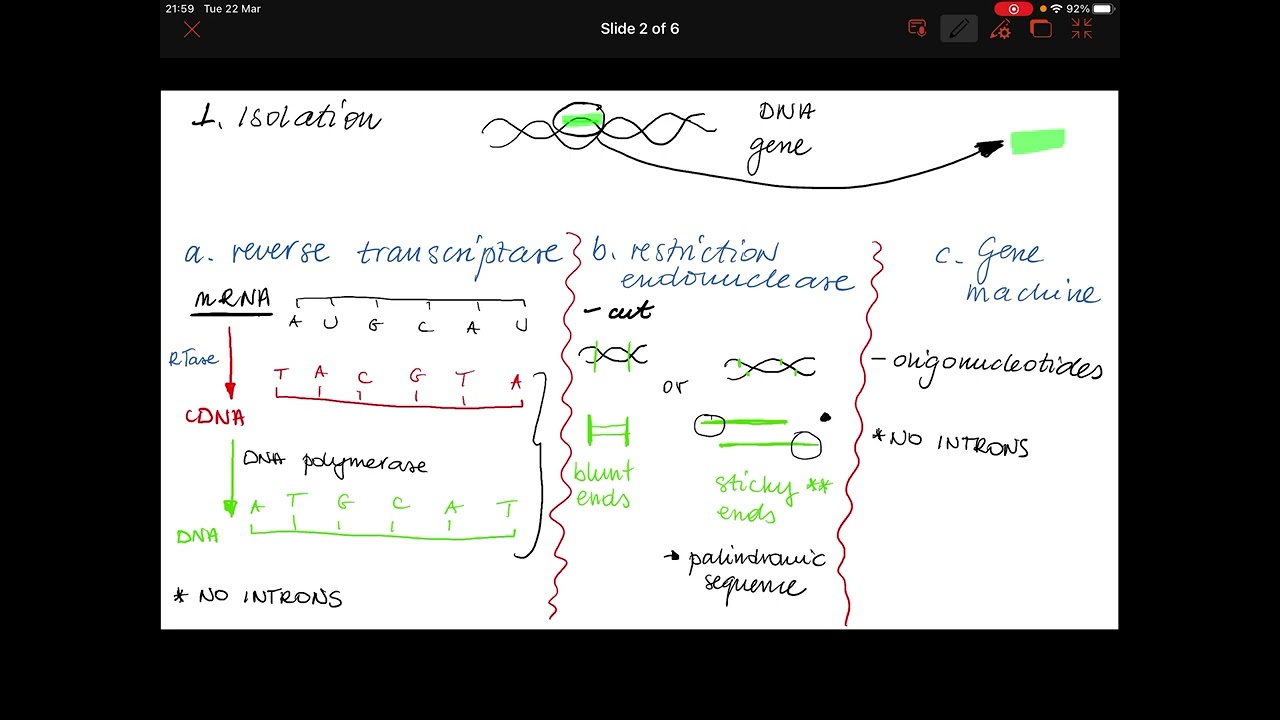 21:59 Tue 22 Mar
92%
Slide 2 of 6
1. Isolation
DNA
gene
a. reverse transcriptase
mRNA
A U G C A U
RTase
T A C G T A
cDNA
DNA polymerase
A T G C A T
DNA
* NO INTRONS
b. restriction
endonuclease
- cut
or
blunt
ends
sticky **
ends
→ palindromic
sequence
c. Gene
machine
- oligonucleotides
* NO INTRONS